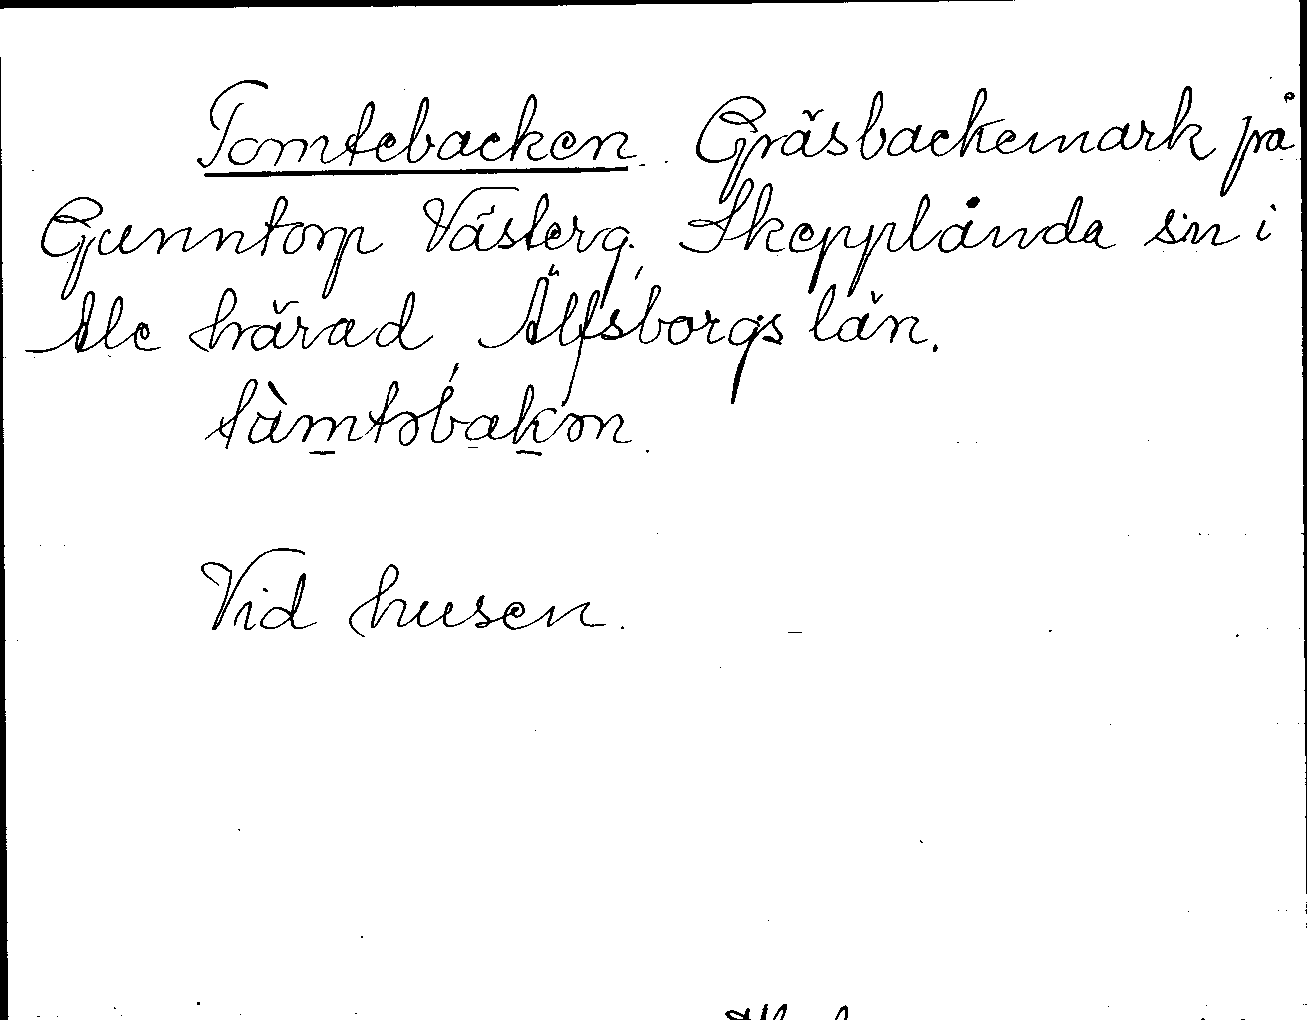 Tomtebacken. Gräsbackemark på
Gunntorp Västerg. Skepplanda sn i
Ale härad, Älfsborgs län.
tùmtəbakən.
Vid husen.